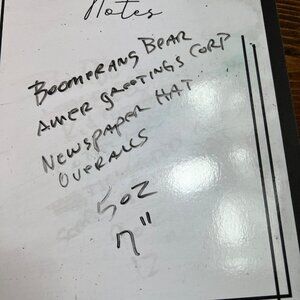 Notes
BOOMERANG BEAR
AMER GREETINGS CORP
NEWSPAPER HAT
OVERALLS
5OZ
7"